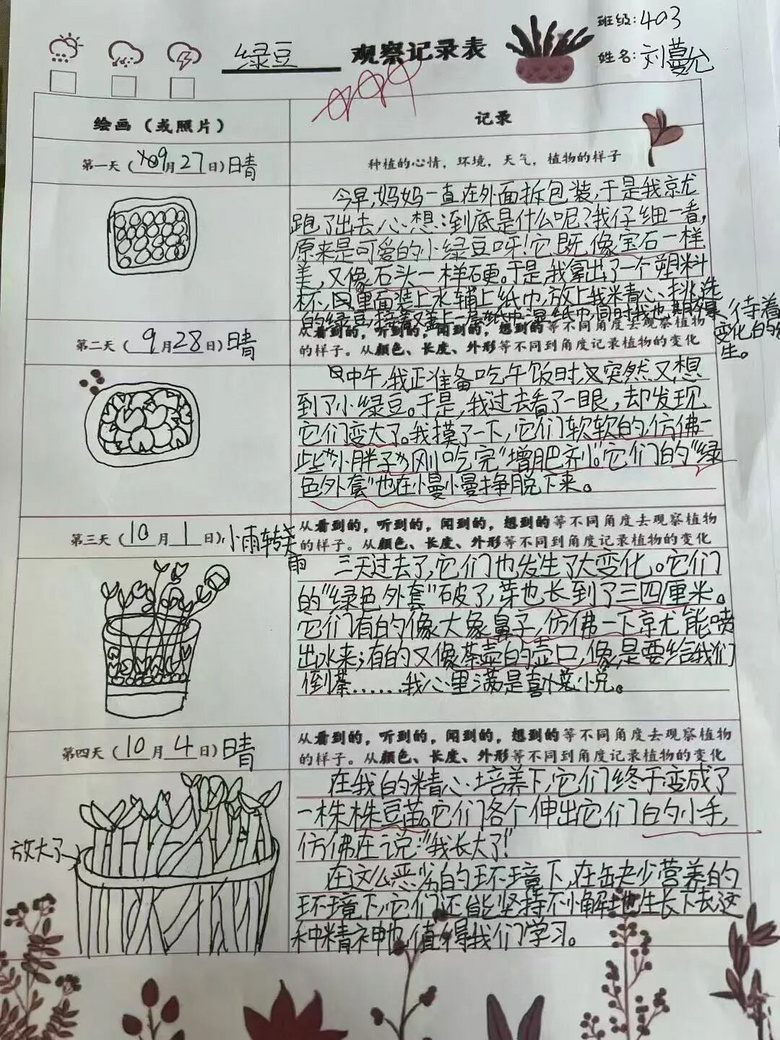 班级:403
绿豆 观察记录表
姓名:刘蔓允
绘画（或照片）
记录
第一天（09月27日）晴
种植的心情，环境，天气，植物的样子
今早,妈妈一直在外面拆包装,于是我就
跑了出去,心想:到底是什么呢?我仔细一看,
原来是可爱的小绿豆呀!它既像宝石一样
美,又像石头一样硬。于是,我拿出了一个塑料
杯,里面装上水,铺上纸巾,放上我精心挑选
的绿豆,接着又盖上一层纸巾湿纸巾,同时我也期待着
变化的
生。
第二天（9月28日）晴
从看到的，听到的，闻到的，想到的等不同角度去观察植物
的样子。从颜色、长度、外形等不同到角度记录植物的变化
中午,我正准备吃午饭时,突然又想
到了小绿豆。于是,我过去看了一眼,却发现
它们变大了。我摸了一下,它们软软的,仿佛一
些“小胖子”刚吃完“增肥剂”。它们的“绿
色外套”也在慢慢挣脱下来。
第三天（10月1日）小雨转
雨
从看到的，听到的，闻到的，想到的等不同角度去观察植物
的样子。从颜色、长度、外形等不同到角度记录植物的变化
三天过去了,它们也发生了大变化。它们
的“绿色外套”破了,芽也长到了三四厘米。
它们有的像大象鼻子,仿佛一下就能喷
出水来;有的又像茶壶的壶口,像是要给我们
倒茶……我心里满是喜悦。
第四天（10月4日）晴
从看到的，听到的，闻到的，想到的等不同角度去观察植物
的样子。从颜色、长度、外形等不同到角度记录植物的变化
在我的精心培养下,它们终于变成了
一株株豆苗。它们各个伸出它们的小手,
仿佛在说:“我长大了!”
放大了
在这么恶劣的环境下,在缺少营养的
环境下,它们还能坚持不懈地生长下去,这
种精神也值得我们学习。